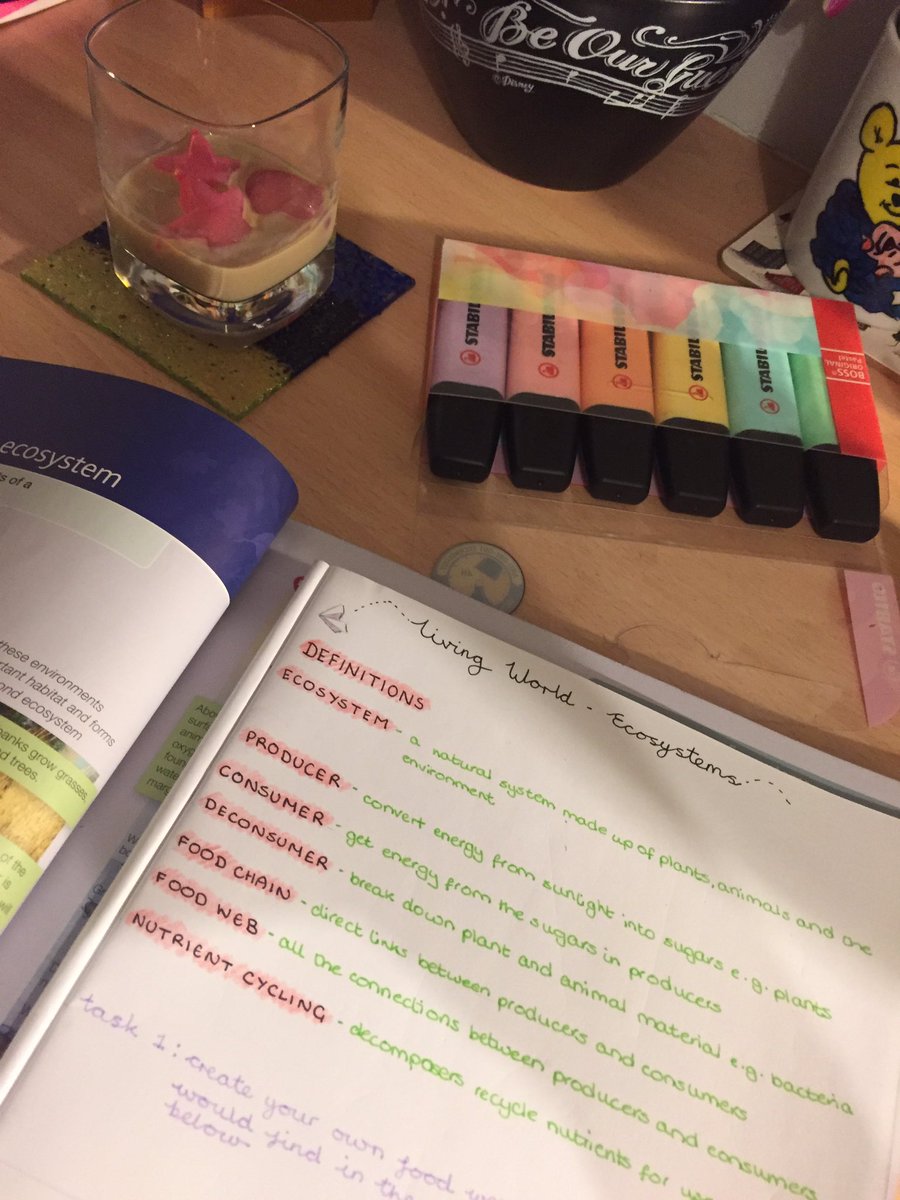 Be Our Gue
©Disney
STABIL
STABIL
STABIL
STABIL
STABIL
BOSS®
ORIGINAL
Pastel
ecosystem
ts of a
these environments
rtant habitat and forms
ond ecosystem
banks grow grasses,
d trees.
of the
r is
will
Living World - Ecosystems
DEFINITIONS
ECOSYSTEM - a natural system made up of plants, animals and the
environment
PRODUCER - convert energy from sunlight into sugars e.g. plants
CONSUMER - get energy from the sugars in producers
DECONSUMER - break down plant and animal material e.g. bacteria
FOOD CHAIN - direct links between producers and consumers
FOOD WEB - all the connections between producers and consumers
NUTRIENT CYCLING - decomposers recycle nutrients for
task 1: create your own food we
would find in the
below